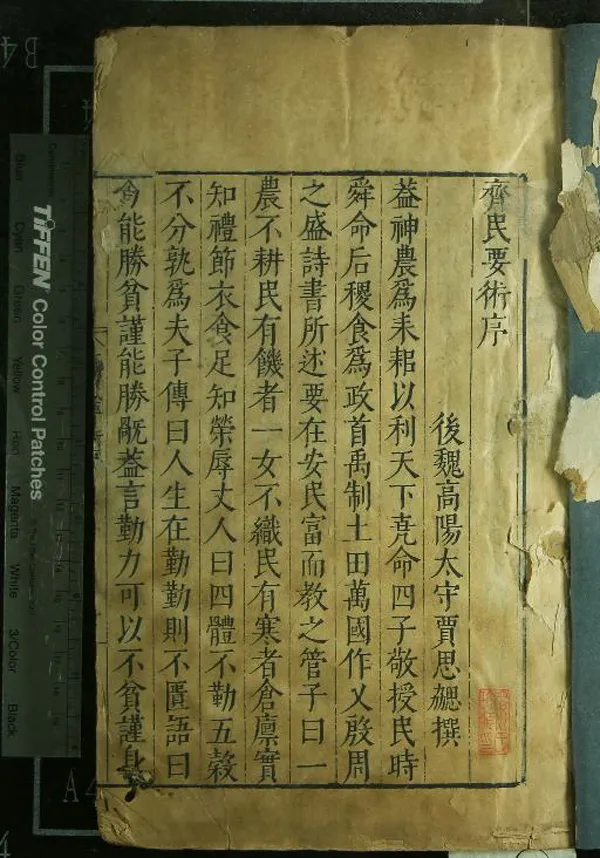 齊民要術序
後魏高陽太守賈思勰撰
葢神農爲耒耜以利天下堯命四子敬授民時
舜命后稷食爲政首禹制土田萬國作乂殷周
之盛詩書所述要在安民富而教之管子曰一
農不耕民有饑者一女不織民有寒者倉廩實
知禮節衣食足知榮辱丈人曰四體不勤五穀
不分孰爲夫子傳曰人生在勤勤則不匱語曰
能勝貧謹能勝旤葢言勤力可以不貧謹身
TIFFEN Color Control Patches
Blue Cyan Green Yellow Red Magenta White 3/Color Black
B4
A4